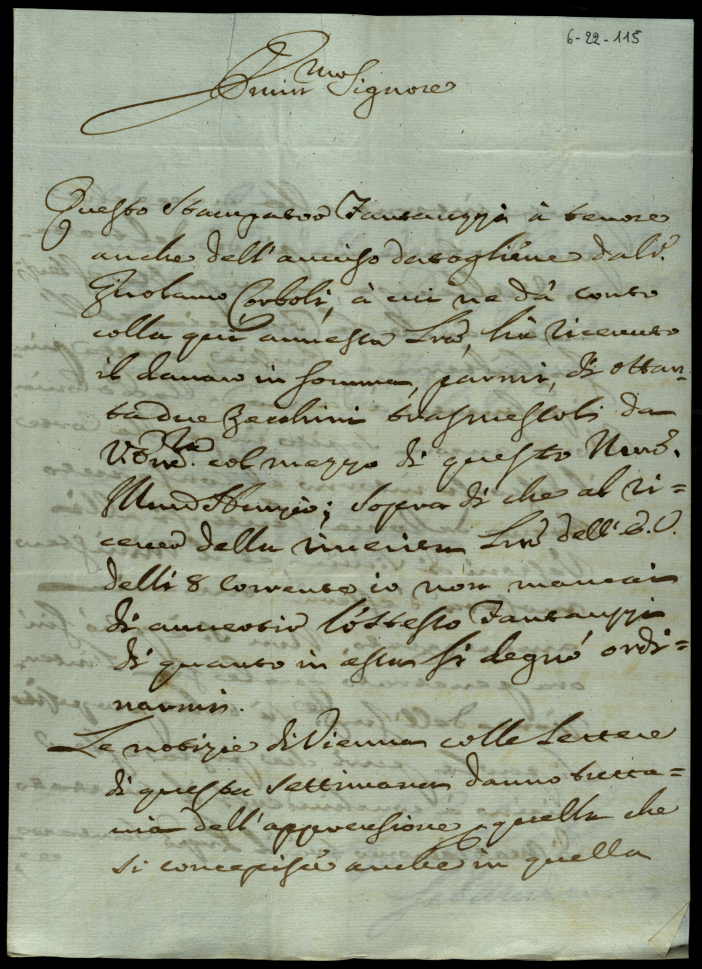 6-22-115
Signore
Questo Stampatore Fantauzzi à tenore
anche dell'avviso datogliene dal Sr.
Girolamo Corboli, à cui ne dà conto
colla quì annessa Lrã, hà ricevuto
il danaro in somma, parmi, di ottan-
tadue Zecchini trasmessoli da
col mezzo di questo
sopra di che al ri=
cever della riverita Lrã dell' E.V.
delli 8 corrente io non mancai
di avvertir l'istesso Fantauzzi
di quanto in essa si degnó ordi=
narmi.
Le notizie di Vienna colle Lettere
di questa settimana danno tutta=
via dell'apprensione p quella che
si concepisce anche in quella